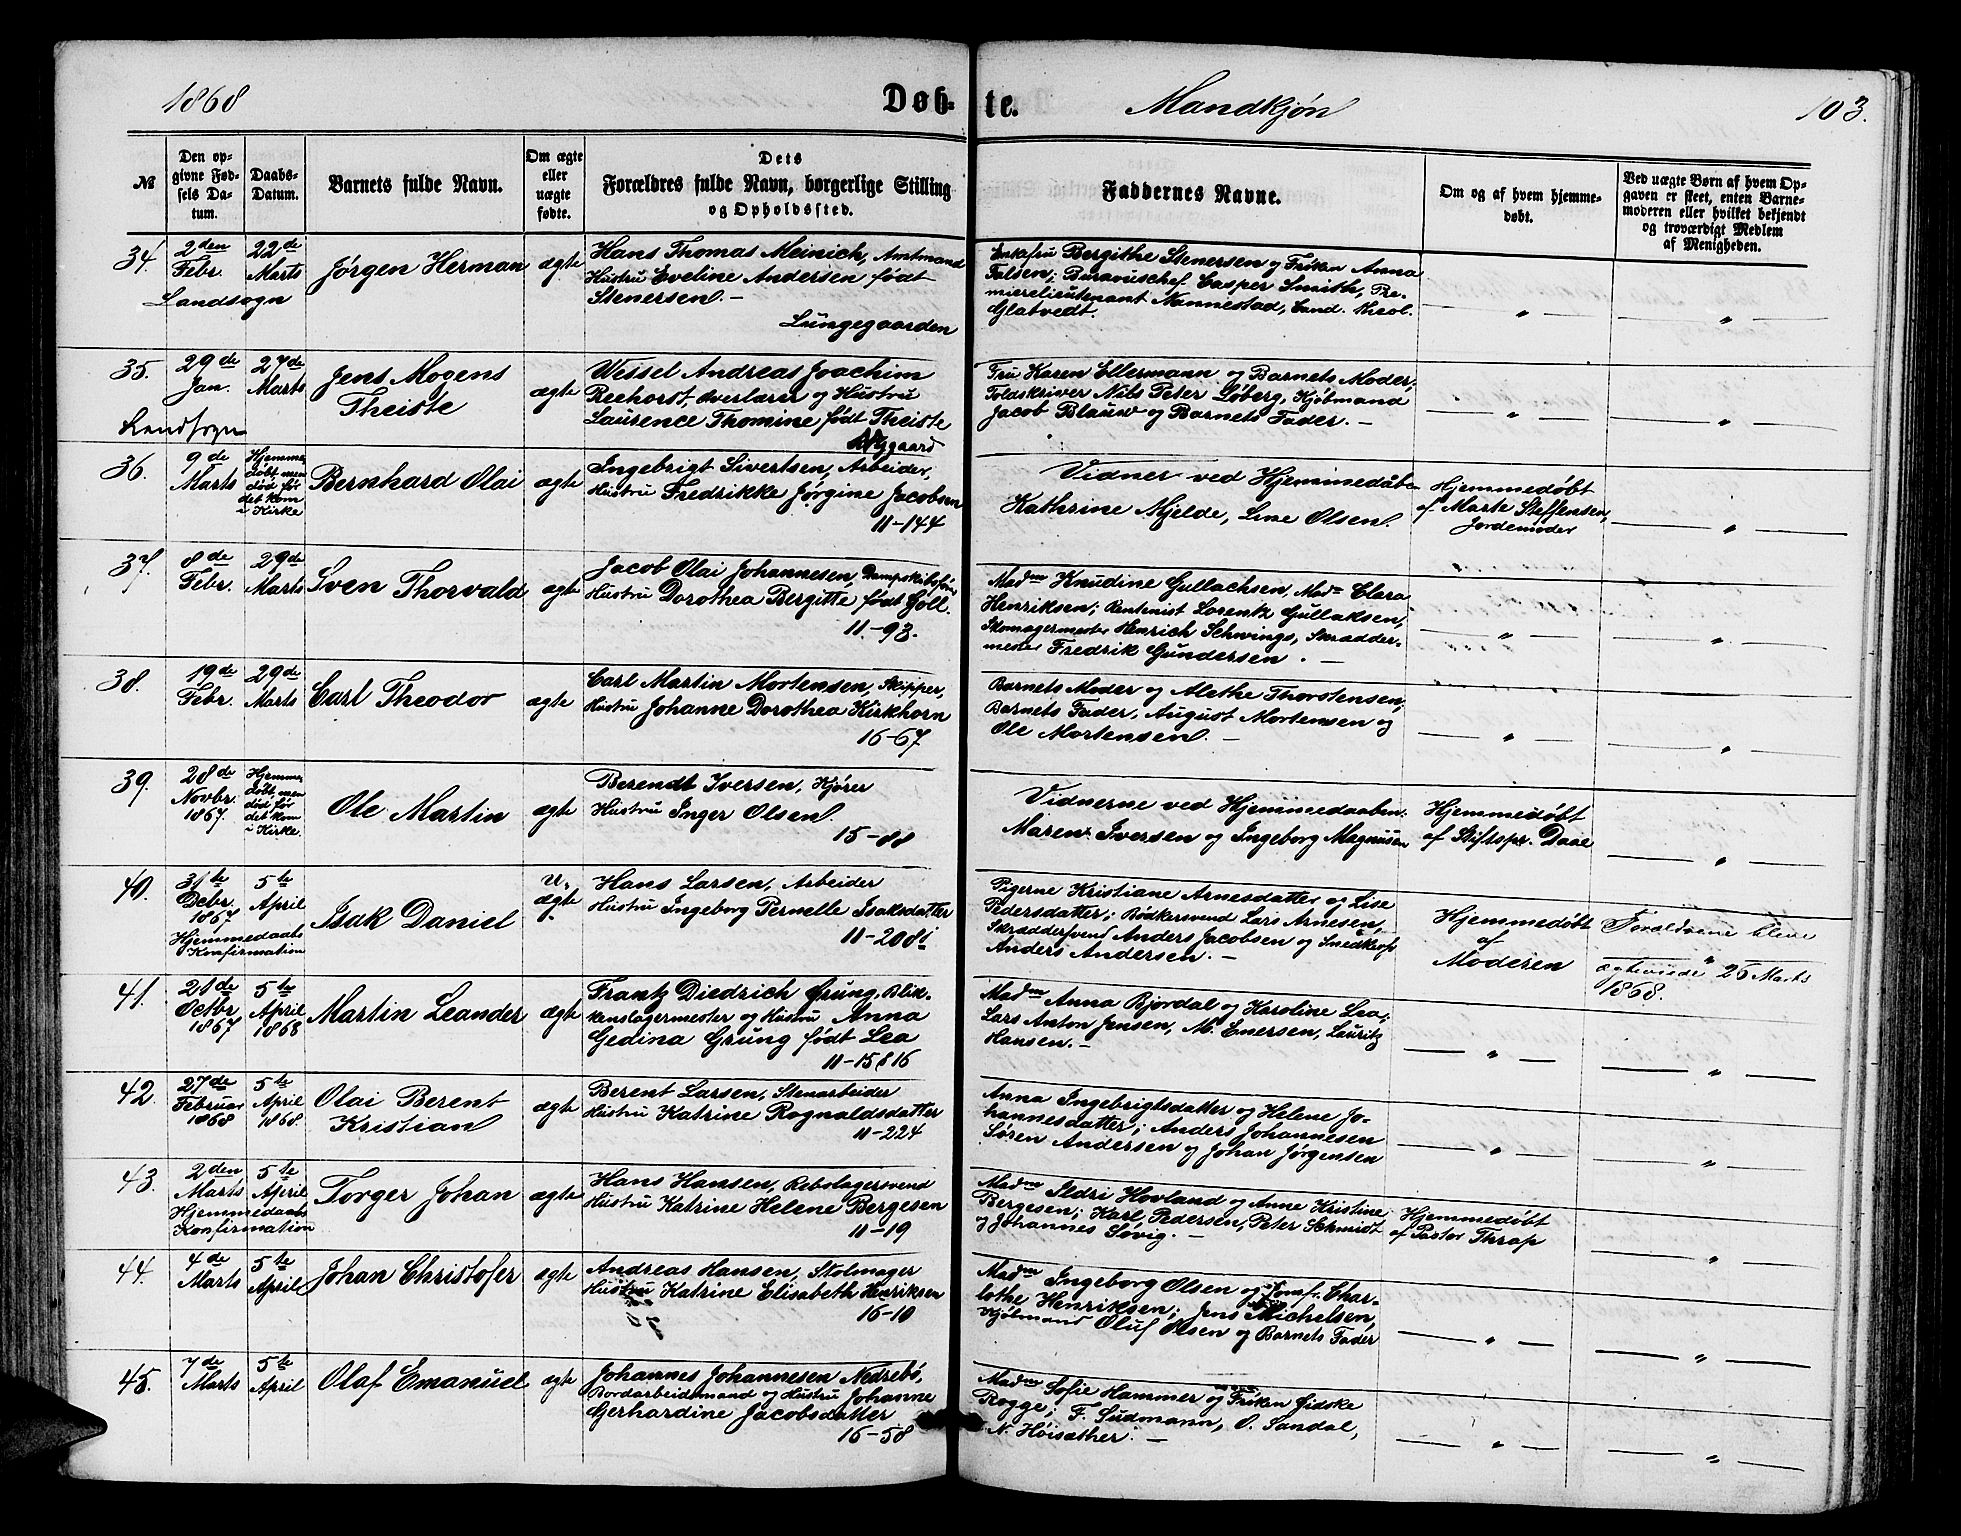 1868
Døb-
te.
Mandkjøn
103.
№
Den op-
givne Fød-
sels Da-
tum.
Daabs-
Datum.
Barnets fulde Navn.
Om ægte
eller
uægte
fødte.
Dets
Forældres fulde Navn, borgerlige Stilling
og Opholdssted.
Faddernes Navne.
Om og af hvem hjemme-
døbt.
Ved uægte Børn af hvem Op-
gaven er skeet, enten Barne-
moderen eller hvilket bekjendt
og troværdigt Medlem
af Menigheden.
34.
2den
Febr.
Landsogn
22de
Marts
Jørgen Herman
ægte
Hans Thomas Meinich, Amtmand
Hustru Eveline Andersen født
Stenersen. —
Lungegaarden
Enkefru Bergithe Stenersen og Frøken Anna
Falsen; Bureauschef Casper Smith, Pre-
mierelieutenant Nannestad, Cand. theol.
Glatvedt.
— " —
— " —
35.
29de
Jan.
Landsogn
27de
Marts
Jens Mogens
Theiste
ægte
Wessel Andreas Joachim
Reehorst, Overlærer og Hustru
Laurence Thomine født Theiste
Nygaard
Fru Karen Ellermann og Barnets Moder;
Toldskriver Nils Peter Løberg, Kjøbmand
Jacob Blauw og Barnets Fader. —
— " —
— " —
36.
9de
Marts
Hjemme-
døbt, men
død før
det kom
i Kirke
Bernhard Olai
ægte
Ingebrigt Sivertsen, Arbeider,
Hustru Fredrikke Jørgine Jacobsen
11-144
Vidner ved Hjemmedåben
Kathrine Mjelde, Line Olsen.
Hjemmedøbt
af Marte Steffensen,
Jordemoder
— " —
37.
8de
Febr.
29de
Marts
Sven Thorvald
ægte
Jacob Olai Johannesen, Dampskibsfører
Hustru Dorothea Bergitte født Goll.
11-93.
Madm Knudine Gullachsen, Madm Clara
Henriksen; Rentenist Lorentz Gullaksen,
Skomagermester Henrich Schwings, Skrædder-
mester Fredrik Gundersen. —
— " —
— " —
38.
19de
Febr.
29de
Marts
Carl Theodor
ægte
Carl Martin Mortensen, Skipper,
Hustru Johanne Dorothea Kirkhorn
16-67
Barnets Moder og Alethe Thorstensen;
Barnets Fader, August Mortensen og
Ole Mortensen. —
— " —
— " —
39.
28de
Novbr.
1867.
Hjemme-
døbt, men
død før
det kom
i Kirke.
Ole Martin
ægte
Berendt Iversen, Kjører
Hustru Inger Olsen.
15-88
Vidnerne ved Hjemmedaaben:
Maren Iversen og Ingeborg Magnusen
Hjemmedøbt
af Stiftspr. Daae
— " —
40.
31te
Decbr.
1867
Hjemmedaabs
Konfirmation
5te
April
Isak Daniel
U-
ægte
Hans Larsen, Arbeider
Hustru Ingeborg Pernelle Isaksdatter
11-208i
Pigerne Kristiane Arnesdatter og Lise
Pedersdatter; Bødkersvend Lars Arnesen,
Skræddersvend Anders Jacobsen og Smedkrop
Anders Andersen. —
Hjemmedøbt
af
Moderen
Forældrene bleve
ægteviede 25 Marts
1868.
41.
21de
Octbr
1867
5te
April
1868
Martin Leander
ægte
Frantz Diedrich Grung, Blik-
kenslagermester og Hustru Anna
Gedina Grung født Lea
11-15&16
Madm Anna Bjordal og Karoline Lea;
Lars Anton Jensen, M. Enersen, Lauritz
Hansen. —
— " —
— " —
42.
27de
Februar
1868
5te
April
1868.
Olai Berent
Kristian
ægte
Berent Larsen, Stenarbeider
Hustru Katrine Rognaldsdatter
11-224
Anna Ingebrigtsdatter og Helene Jo-
hannesdatter; Anders Johannesen
Søren Andersen og Johan Jørgensen
— " —
— " —
43.
2den
Marts
Hjemmedaabs
Konfirmation
5te
April
Torger Johan
ægte
Hans Hansen, Rebslagersvend
Hustru Katrine Helene Bergesen
11-19
Madm Sidri Hovland og Anne Kristine
Bergesen; Karl Pedersen, Peter Schmidt
og Johannes Søvig. —
Hjemmedøbt
af Pastor Thrap
— " —
44.
4de
Marts
5te
April
Johan Christofer
ægte
Andreas Hansen, Stolmager
Hustru Katrine Elisabeth Henriksen
16-10
Madm Ingeborg Olsen og Jomf. Char-
lothe Henriksen; Jens Michelsen,
Kjøbmand Oluf Olsen og Barnets Fader
— " —
— " —
45.
7de
Marts
5te
April
Olaf Emanuel
ægte
Johannes Johannesen Nedrebø,
Bordarbeidsmand og Hustru Johanne
Gerhardine Jacobsdatter
16-58
Madm Sofie Hammer og Frøken Gidske
Rogge; F. Sudmann, O. Sandal,
N. Høisæther. —
— " —
— " —